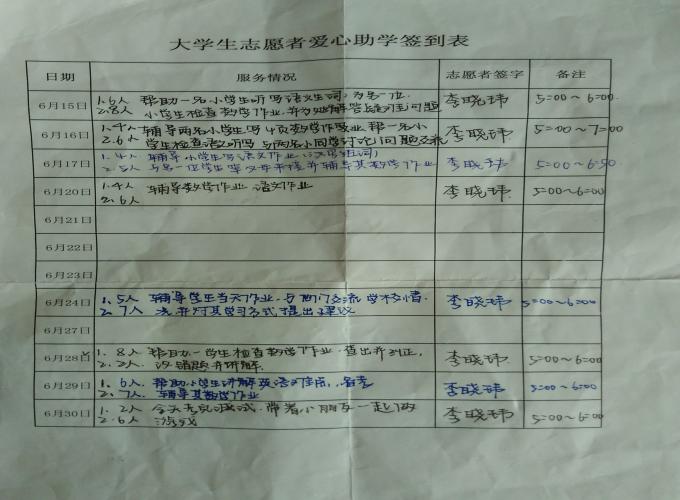 大学生志愿者爱心助学签到表
日期 服务情况 志愿者签字 备注
6月15日 1.6人 帮助一名小学生听写语文生词,为另一位 李晓玮 5:00～6:00
2.8人 小学生检查数学作业,并为她解答疑难问题
6月16日 1.4人 辅导两名小学生写4页数学作业,帮一名小 李晓玮 5:00～7:00
2.6人 学生检查语文听写 与两名小同学讨论问题交流
6月17日 1.4人 辅导小学生写语文作业 李晓玮 5:00～6:50
2.5人 与另一位学生 并辅导其数学作业
6月20日 1.4人 辅导数学作业 语文作业 李晓玮 5:00～6:00
2.6人
6月21日
6月22日
6月23日
6月24日 1.5人 辅导学生当天作业.与他们交流学校情. 李晓玮 5:00～6:00
2.7人 况并对其学习方式提出建议
6月27日
6月28日 1.8人 帮助一学生检查数学作业.查出并纠正, 李晓玮 5:00～6:00
2.2人 错题并讲解.
6月29日 1.6人 帮助小学生讲解 语文作 李晓玮 5:00～6:00
2.7人. 辅导其数学作业
6月30日 1.2人 今天 考试.带着小朋友一起做 李晓玮 5:00～6:00
2.6人 游戏